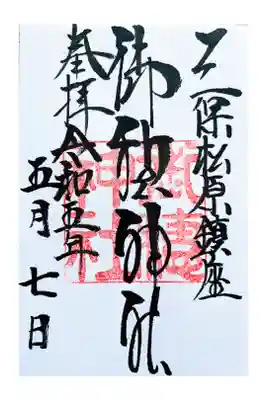 三保松原鎮座
御穂神社
奉拝 令和五年
五月七日